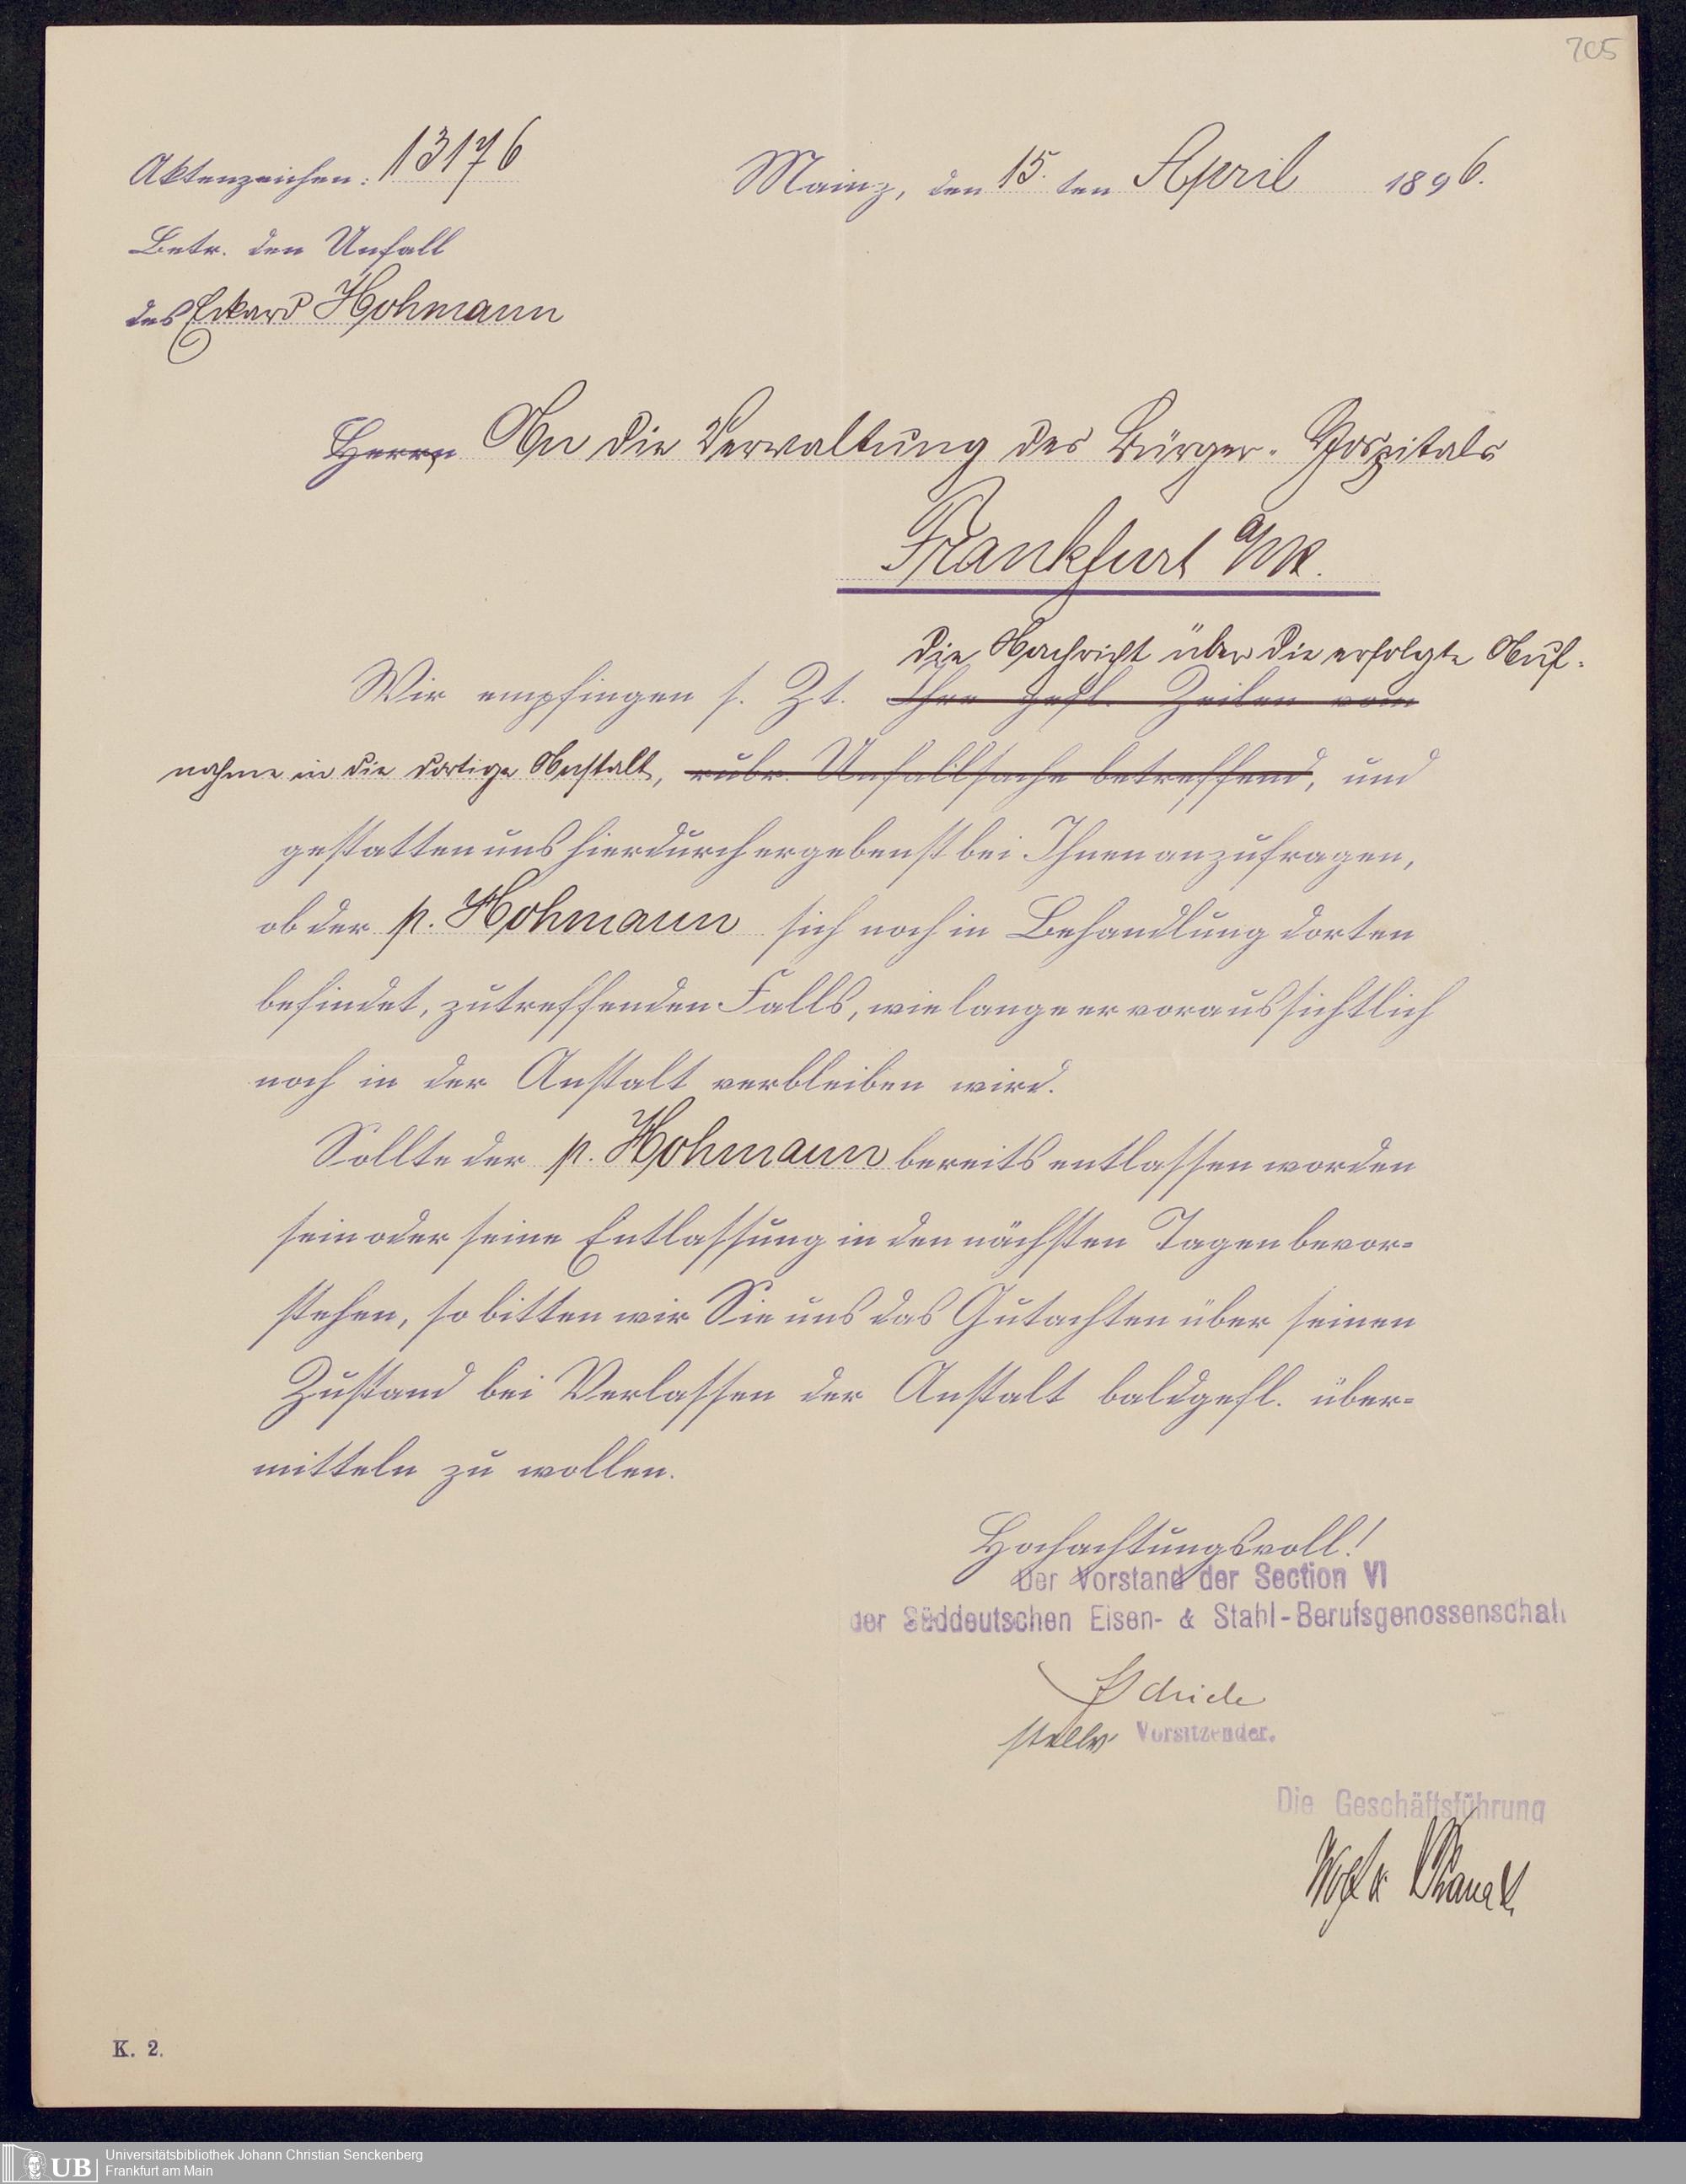 705
Aktenzeichen: 13176
Mainz, den 15. ten April 1896.
Betr. den Unfall
des Eckard Hohmann
Herrn An die Verwaltung des Bürger-Hospitals
Frankfurt a/M.
die Nachricht über die erfolgte Auf-
Wir empfingen s. Zt. Ihre gefl. Zeilen vom
nahme in die dortige Anstalt, rubr. Unfallsache betreffend, und
gestatten uns hierdurch ergebenst bei Ihnen anzufragen,
ob der p. Hohmann sich noch in Behandlung dorten
befindet, zutreffenden Falls, wie lange er voraussichtlich
noch in der Anstalt verbleiben wird.
Sollte der p. Hohmann bereits entlassen worden
sein oder seine Entlassung in den nächsten Tagen bevor-
stehen, so bitten wir Sie uns das Gutachten über seinen
Zustand bei Verlassen der Anstalt baldgefl. über-
mitteln zu wollen.
Hochachtungsvoll!
Der Vorstand der Section VI
der Süddeutschen Eisen- & Stahl-Berufsgenossenschaft
stellv. Vorsitzender.
Die Geschäftsführung
K. 2.
UB
Universitätsbibliothek Johann Christian Senckenberg
Frankfurt am Main